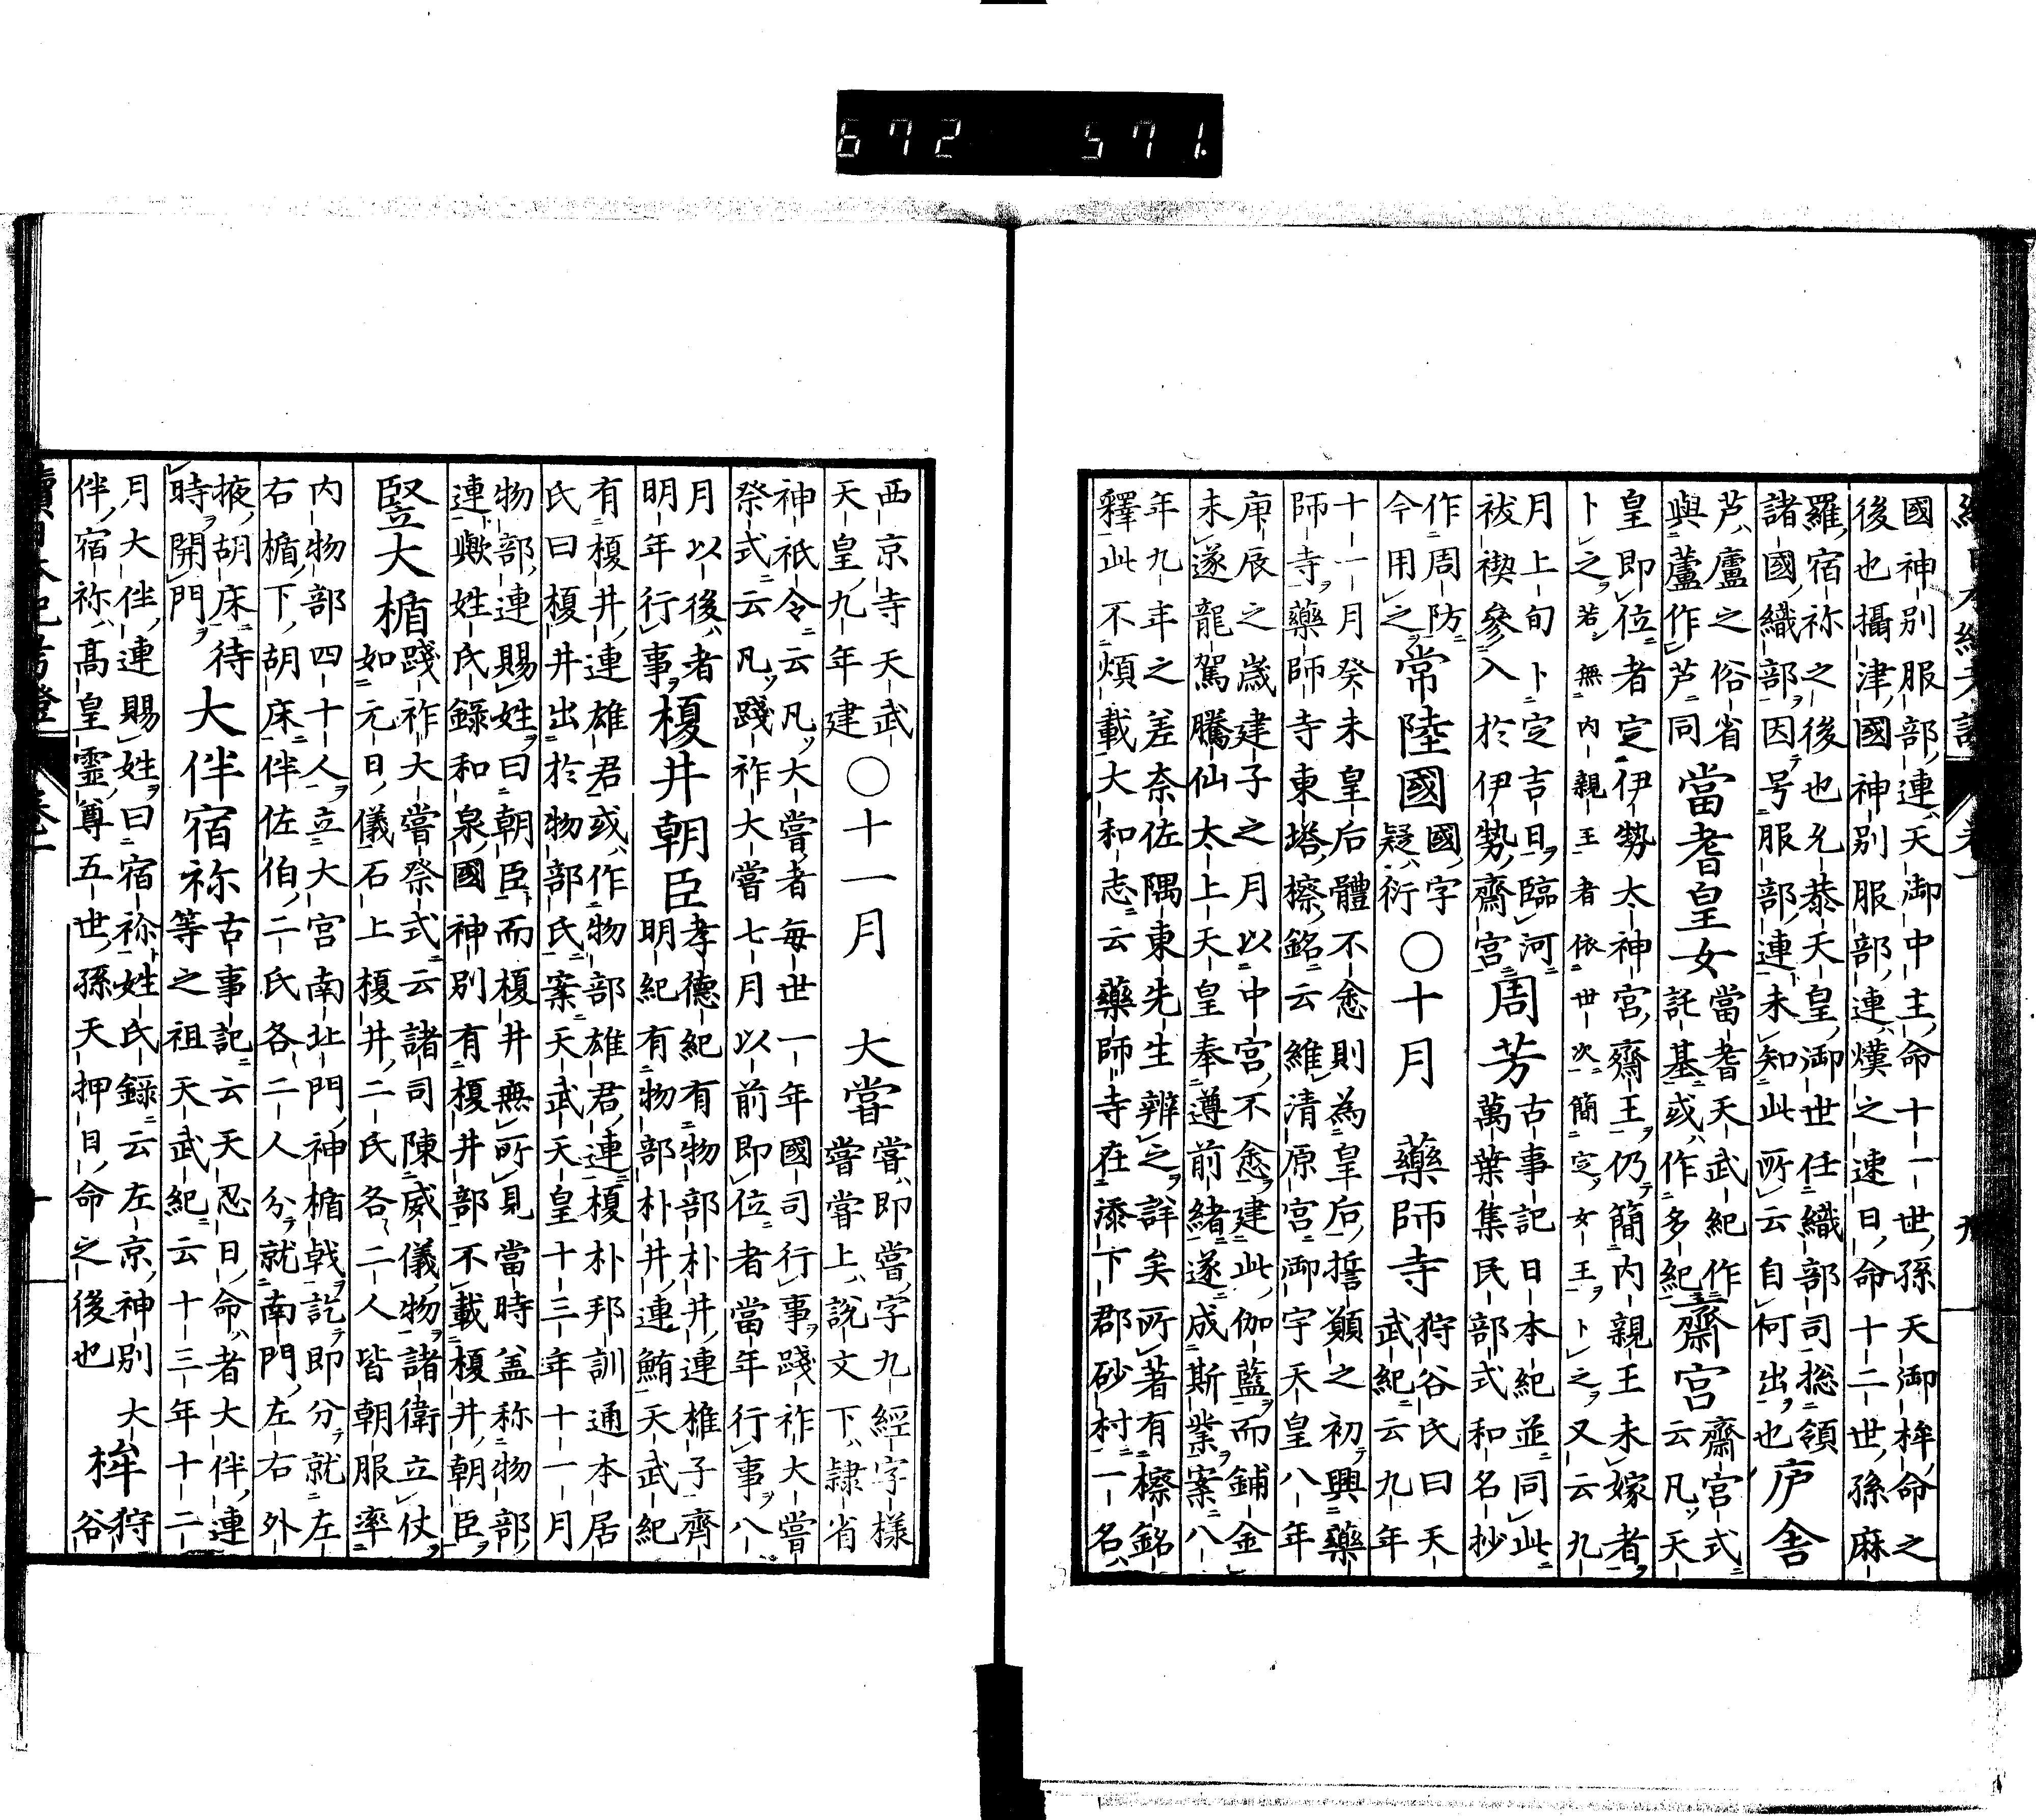 672 571.
國神別服部連天御中主命十一世孫天御桙命之
後也攝津國神別服部連熯之速日命十二世孫麻
羅宿祢之後也允恭天皇御世任織部司総領
諸國織部因号服部連未知此所云自何出也庐舎
芦廬之俗省
與蘆作芦同當耆皇女當耆天武紀作
託基或作多紀齋宮齋宮式
云凡天
皇即位者定伊勢太神宮齋王仍簡内親王未嫁者
卜之若無内親王者依世次簡定女王卜之又云九
月上旬卜定吉日臨河
祓禊參入於伊勢齋宮周芳古事記日本紀並同此
萬葉集民部式和名抄
作周防
今用之常陸國國字
疑衍〇十月　藥師寺狩谷氏曰天
武紀云九年
十一月癸未皇后體不悆則為皇后誓願之初興藥
師寺藥師寺東塔檫銘云維清原宮御宇天皇八年
庚辰之歳建子之月以中宮不悆建此伽藍而鋪金
未遂龍駕騰仙太上天皇奉遵前緒遂成斯業案八
年九年之差奈佐隅東先生辨之詳矣所著有檫銘
釋此不煩載大和志云藥師寺在添下郡砂村一名
西京寺天武
天皇九年建〇十一月　大嘗嘗即嘗字九經字様
嘗甞上說文下隷省
神祇令云凡大嘗者毎世一年國司行事踐祚大嘗
祭式云凡踐祚大嘗七月以前即位者當年行事八
月以後者
明年行事榎井朝臣孝德紀有物部朴井連椎子齊
明紀有物部朴井連鮪天武紀
有榎井連雄君或作物部雄君連榎朴邦訓通本居
氏曰榎井出於物部氏案天武天皇十三年十一月
物部連賜姓曰朝臣而榎井無所見當時盖称物部
連歟姓氏錄和泉國神別有榎井部不載榎井朝臣
竪大楯踐祚大嘗祭式云諸司陳威儀物諸衛立仗
如元日儀石上榎井二氏各二人皆朝服率
内物部四十人立大宮南北門神楯戟訖即分就左
右楯下胡床伴佐伯二氏各二人分就南門左右外
掖胡床待
時開門大伴宿祢古事記云天忍日命者大伴連
等之祖天武紀云十三年十二
月大伴連賜姓曰宿祢姓氏錄云左京神別大
伴宿祢髙皇靈尊五世孫天押日命之後也桙狩
谷
續日本紀考證
卷一